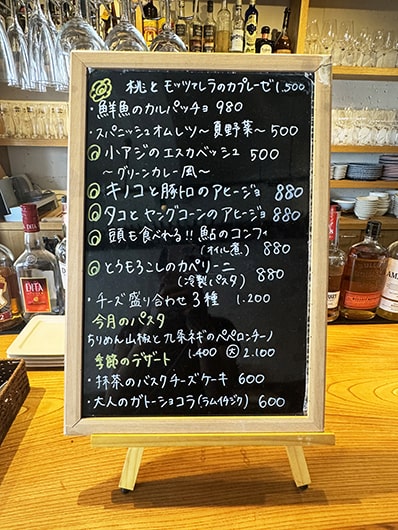 桃とモッツァレラのカプレーゼ 1,500
鮮魚のカルパッチョ 980
・スパニッシュオムレツ〜夏野菜〜 500
小アジのエスカベッシュ 500
〜グリーンカレー風〜
キノコと豚トロのアヒージョ 880
タコとヤングコーンのアヒージョ 880
頭も食べれる!! 鮎のコンフィ
(オイル煮) 880
とうもろこしのカペリーニ
(冷製パスタ) 880
・チーズ盛り合わせ3種 1.200
今月のパスタ
ちりめん山椒と九条ネギのペペロンチーノ
1.400 大 2.100
季節のデザート
・抹茶のバスクチーズケーキ 600
・大人のガトーショコラ(ラムイチジク) 600
DITA